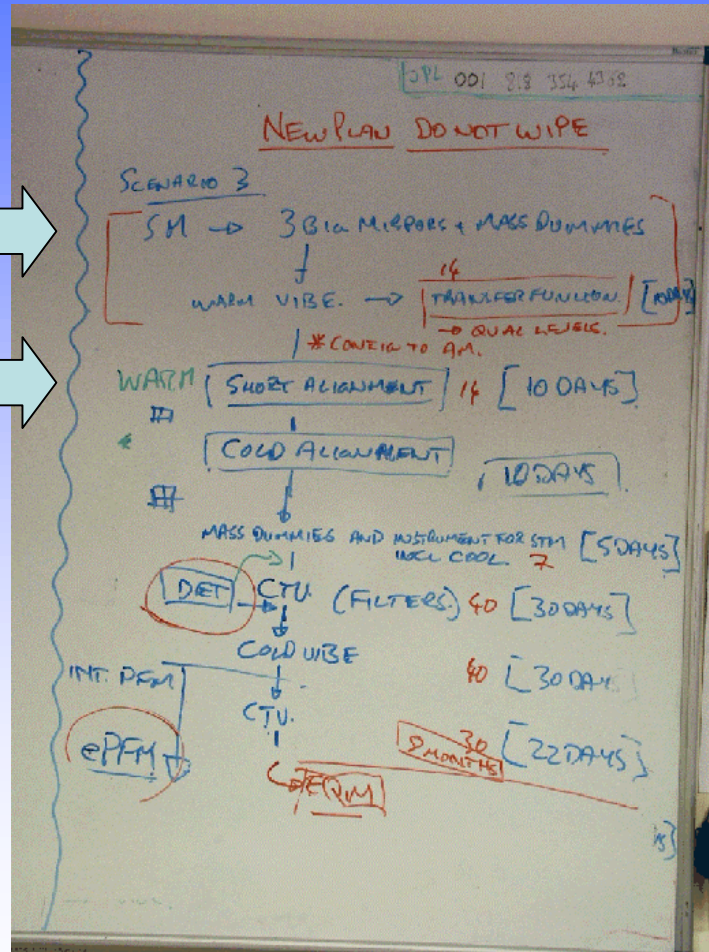 JPL 001 818 354 4368
NEW PLAN DO NOT WIPE
SCENARIO 3
SM → 3 BIG MIRRORS + MASS DUMMIES
14
WARM VIBE. → TRANSFER FUNCTION. [10 DAYS]
→ QUAL LEVELS.
* CONFIG TO AM.
WARM SHORT ALIGNMENT 14 [10 DAYS]
COLD ALIGNMENT
10 DAYS
MASS DUMMIES AND INSTRUMENT FOR STM [5 DAYS]
INCL COOL. 7
DET → CTV. (FILTERS) 40 [30 DAYS]
COLD VIBE
INT. PFM 40 [30 DAYS]
CTV.
ePFM 30 [22 DAYS]
9 MONTHS